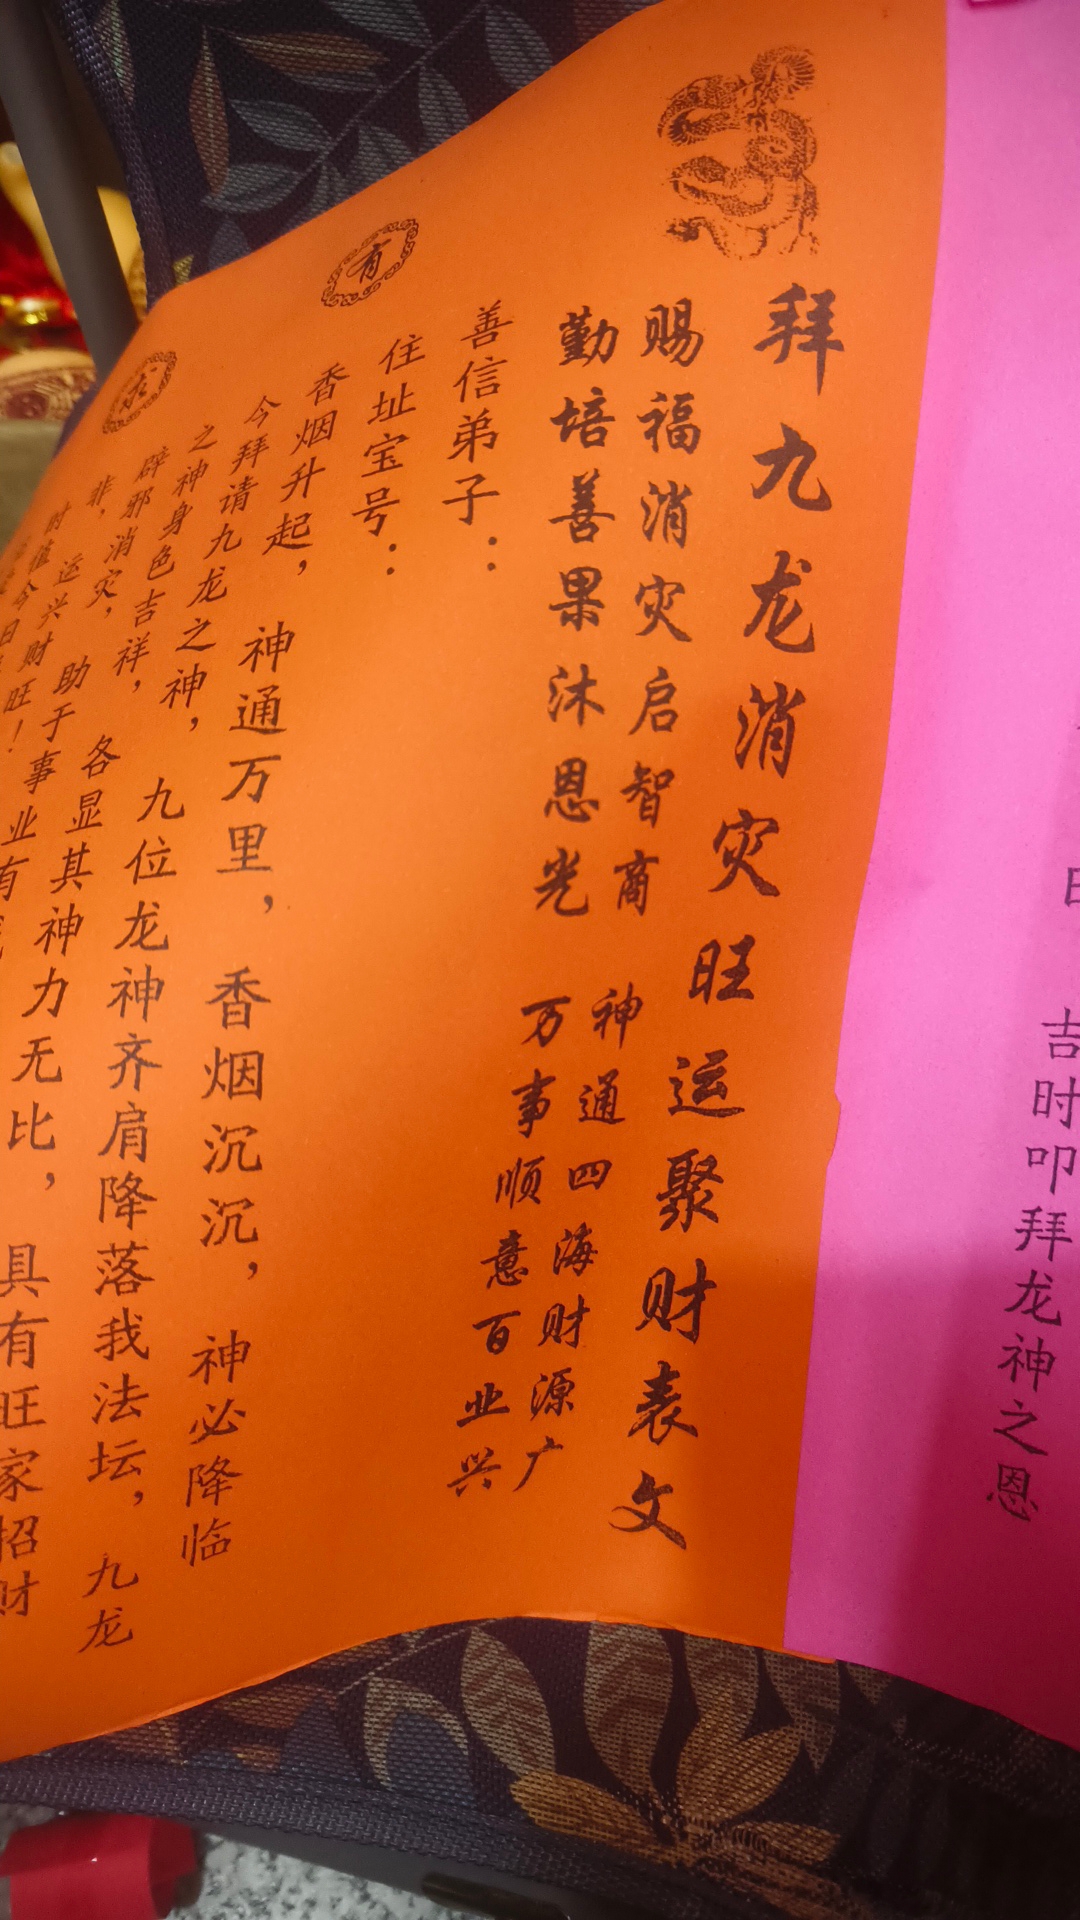 日 吉时叩拜龙神之恩
拜九龙消灾旺运聚财表文
赐福消灾启智商 神通四海财源广
勤培善果沐恩光 万事顺意百业兴
善信弟子：
有
住址宝号：
香烟升起， 神通万里， 香烟沉沉， 神必降临
今拜请九龙之神， 九位龙神齐肩降落我法坛， 九龙
之神身色吉祥， 各显其神力无比， 具有旺家招财
求
辟邪消灾， 助于事业有
非， 运兴财旺！
时值今日